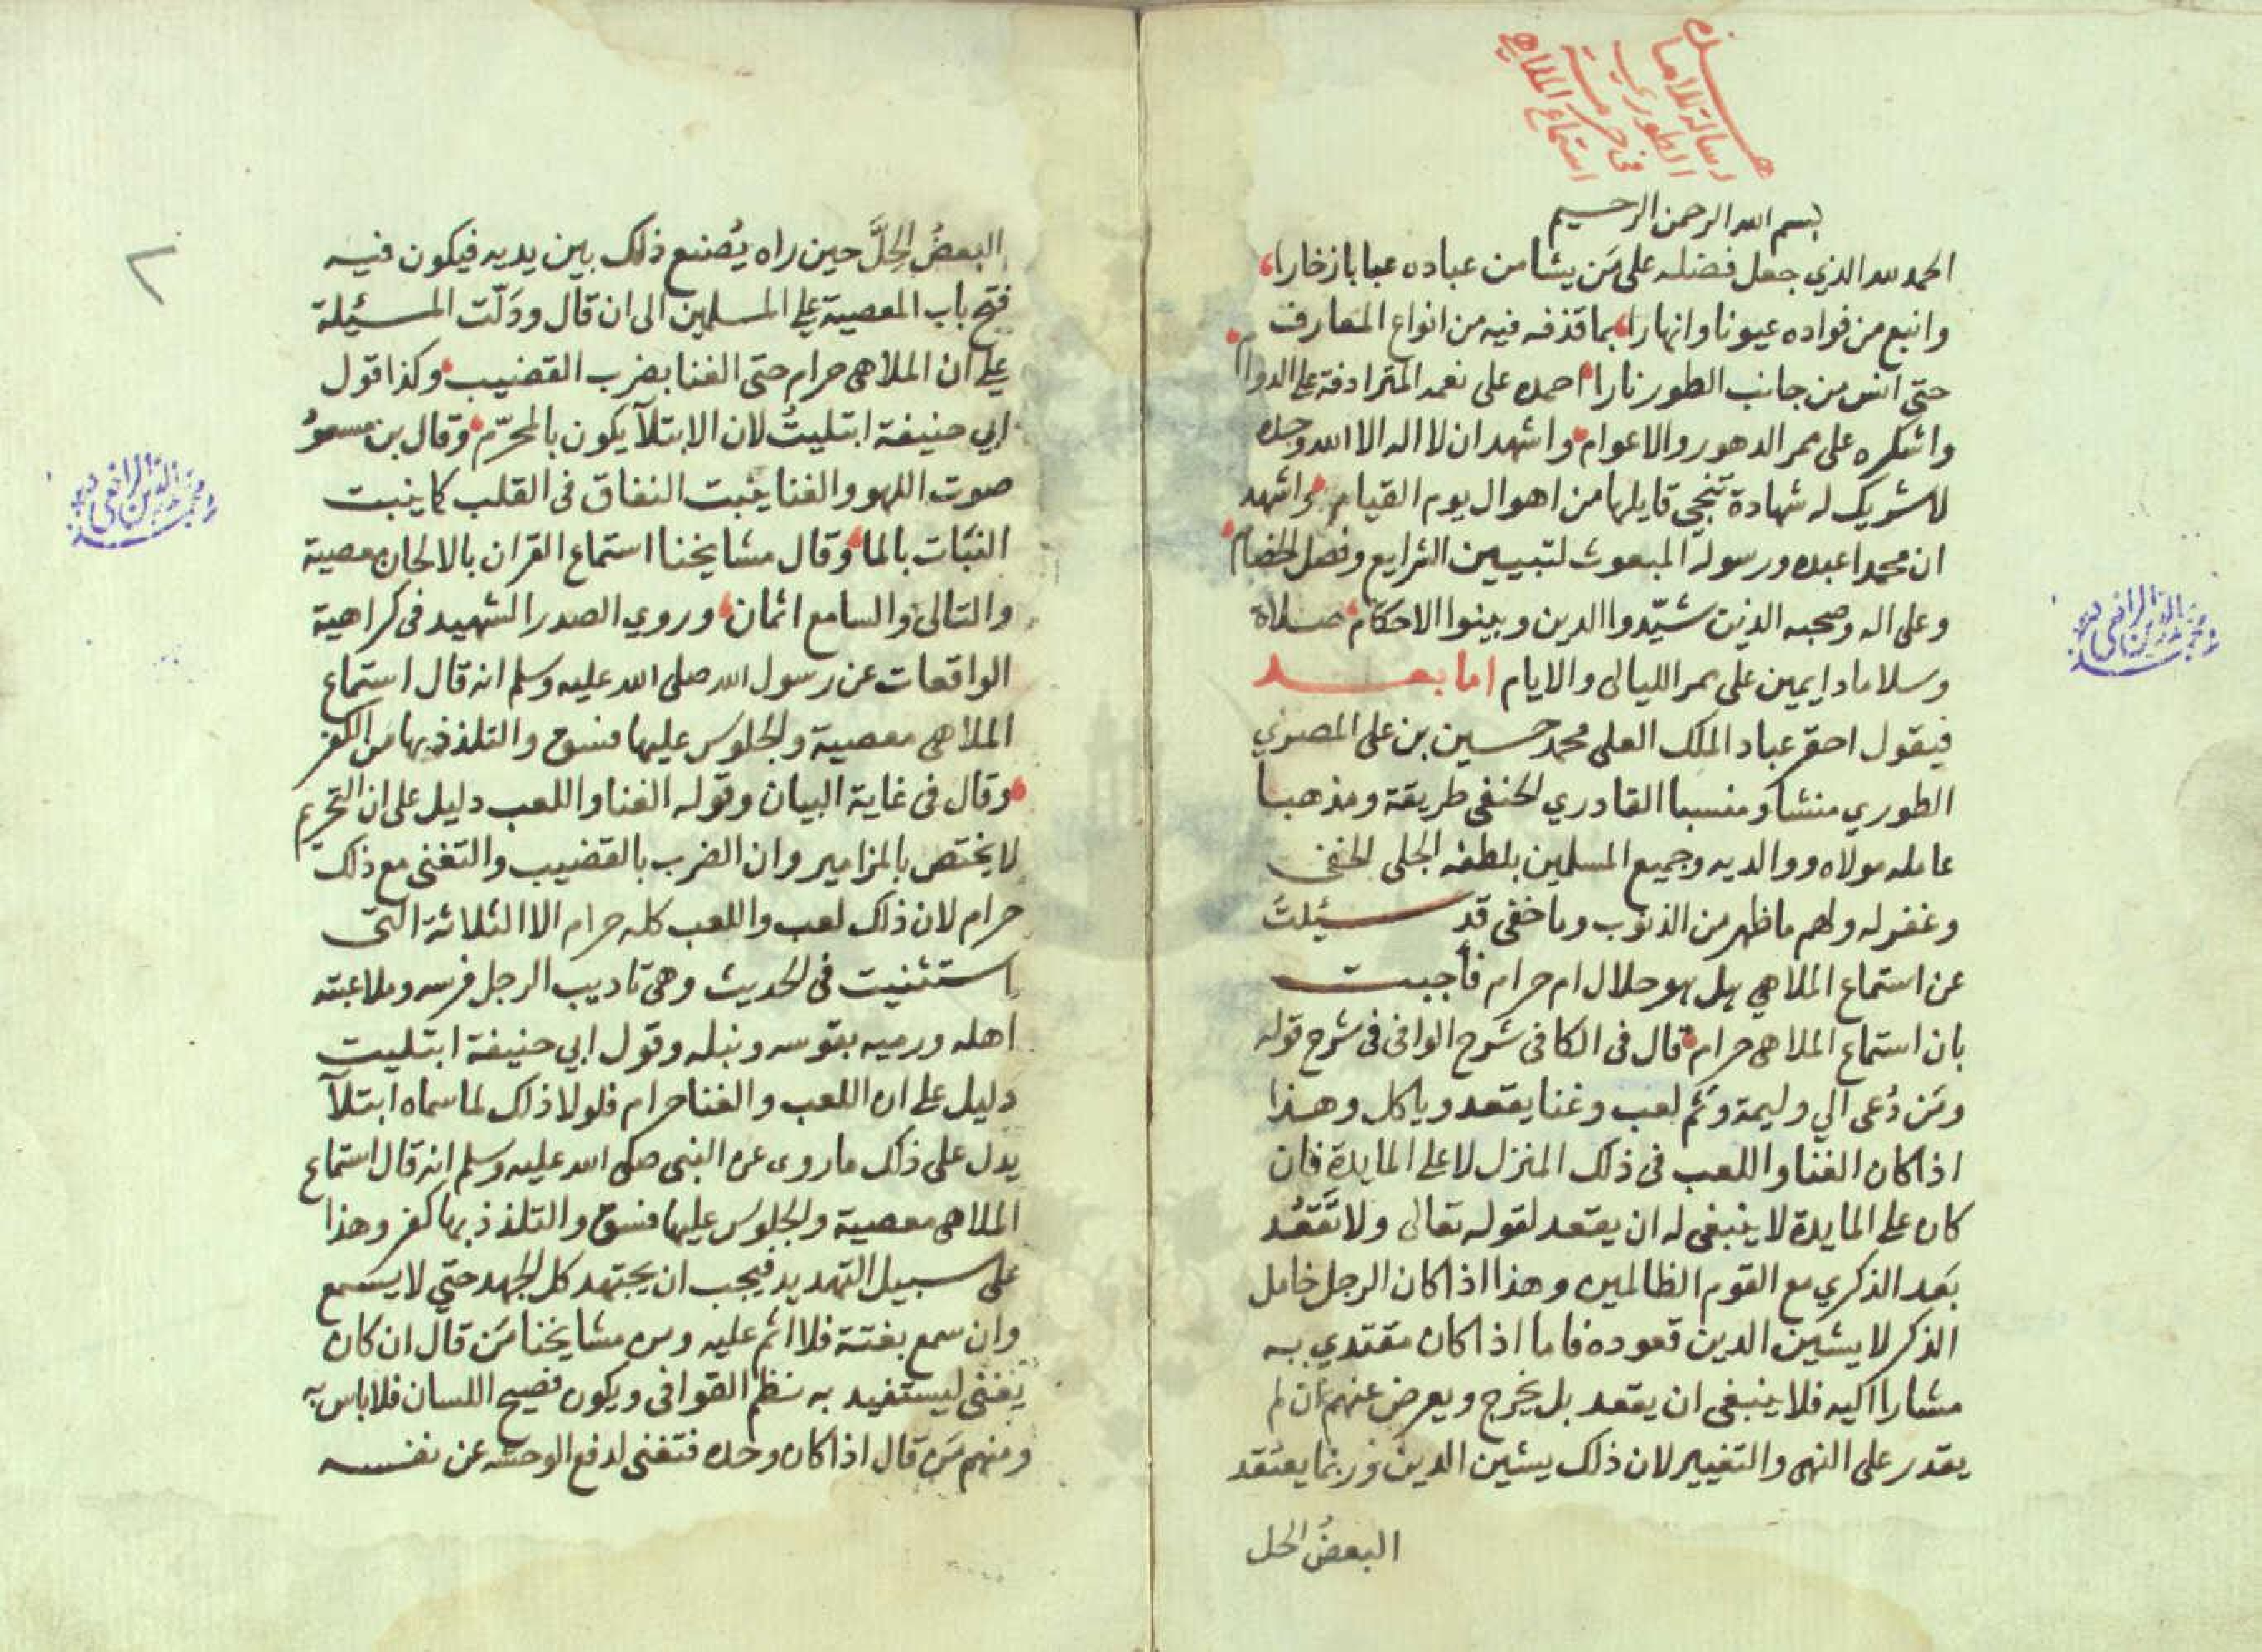 هذه
رسالة للامام
الطوري
في حرمة
استماع الملاهي
بسم الله الرحمن الرحيم
الحمد لله الذي جعل فضله على مَن يشا من عباده عبابا زخارا
وانبع من فواده عيونا وانهارا بما قذفه فيه من انواع المعارف
حتى انس من جانب الطور نارا احمده على نعمه المترادفة على الدوام
واشكره على ممر الدهور والاعوام واشهد ان لا اله الا الله وحده
لا شريك له شهادة تنجي قايلها من اهوال يوم القيام واشهد
ان محمدا عبده ورسوله المبعوث لتبيين الشرايع وفصل الخصام
وعلى اله وصحبه الذين شيّدوا الدين وبينوا الاحكام صلاة
وسلاما دايمين على ممر الليالي والايام اما بعد
فيقول احقر عباد الملك العلي محمد حسين بن علي المصري
الطوري منشا ومنسبا القادري الحنفي طريقة ومذهبا
عامله مولاه ووالديه وجميع المسلمين بلطفه الجلى الخفى
وغفر له ولهم ما ظهر من الذنوب وما خفى قد سيلت
عن استماع الملاهي هل هو حلال ام حرام فأجبت
بان استماع الملاهى حرام قال فى الكافى شرح الوافى فى شرح قوله
ومَن دُعى الي وليمة وثَم لعب وغنا يقعد وياكل وهذا
اذا كان الغنا واللعب فى ذلك المنزل لا على المايدة فان
كان على المايدة لا ينبغى له ان يقعد لقوله تعالى ولا تَقعُد
بَعد الذكري مع القوم الظالمين وهذا اذا كان الرجل خامل
الذكر لا يشين الدين قعوده فاما اذا كان مقتدي به
مشارا اليه فلا ينبغى ان يقعد بل يخرج ويعرض عنهم ان لم
يقدر على النهى والتغيير لان ذلك يشين الدين وربما يعتقد
البعضُ الحل
٢
البعضُ الحِلَّ حين راه يُصنع ذلك بين يديه فيكون فيه
فتح باب المعصية على المسلمين الى ان قال ودَلّت المسئيلة
على ان الملاهى حرام حتى الغنا بضرب القضيب وكذا قول
ابي حنيفة ابتليتُ لان الابتلآ يكون بالمحرّم وقال بن مسعود
صوت اللهو والغنا ينبت النفاق فى القلب كما ينبت
النبَات بالما وقال مشايخنا استماع القران بالالحان معصية
والتالى والسامع اثمان وروي الصدر الشهيد فى كراهية
الواقعات عن رسول الله صلى الله عليه وسلم انه قال استماع
الملاهى معصية والجلوس عليها فسوق والتلذذ بها من الكفر
وقال فى غاية البيان وقوله الغنا واللعب دليل على ان التحريم
لا يختص بالمزامير وان الضرب بالقضيب والتغنى مع ذلك
حرام لان ذلك لعب واللعب كله حرام الا الثلاثة التى
استثنيت فى الحديث وهى تاديب الرجل فرسه وملاعبته
اهله ورميه بقوسه ونبله وقول ابي حنيفة ابتليت
دليل على ان اللعب والغنا حرام فلولا ذلك لما سماه ابتلآ
يدل على ذلك ما روى عن النبى صلى الله عليه وسلم انه قال استماع
الملاهى معصية والجلوس عليها فسوق والتلذذ بها كفر وهذا
على سبيل التهديد فيجب ان يجتهد كل الجهد حتي لا يسمع
وان سمع بغتة فلا اثم عليه ومن مشايخنا مَن قال ان كان
يَغنى ليستفيد به نظم القوافى ويكون فصيح اللسان فلا باس به
ومنهم مَن قال اذا كان وحده فتغنى لدفع الوحشه عن نفسه